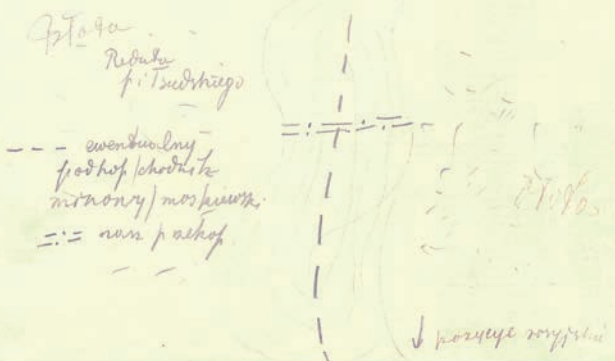 Reduta
Piłsudskiego
--- ewentualny
podkop/chodnik
minowy/moskiewski
nasz przekop
↓ pozycye rosyjskie